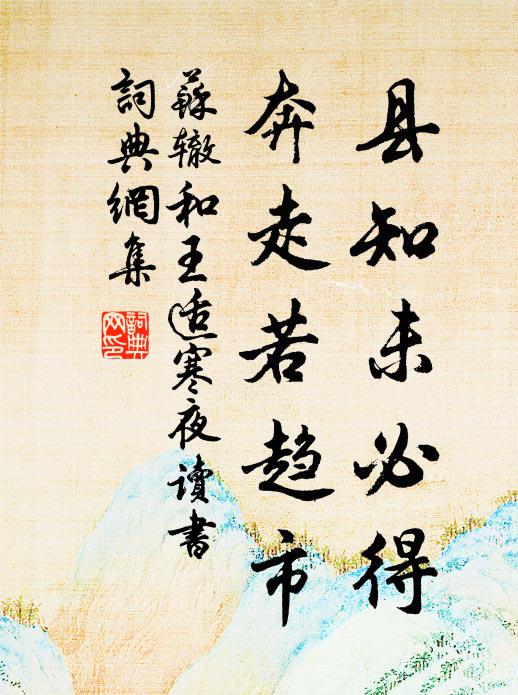 县知未必得
奔走若趋市
蘇辙和王适寒夜读書
詞典網集
詞典网印